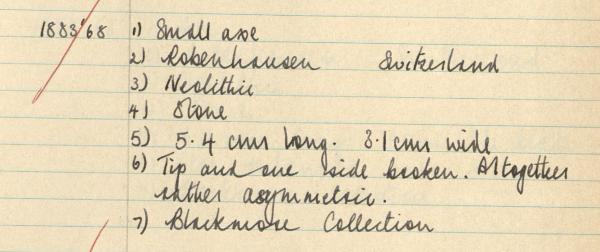 1883/68 1) Small axe
2) Robenhausen Switzerland
3) Neolithic
4) Stone
5) 5.4 cms long. 3.1 cms wide
6) Tip and one side broken. Altogether
rather asymmetric.
7) Blackmore Collection